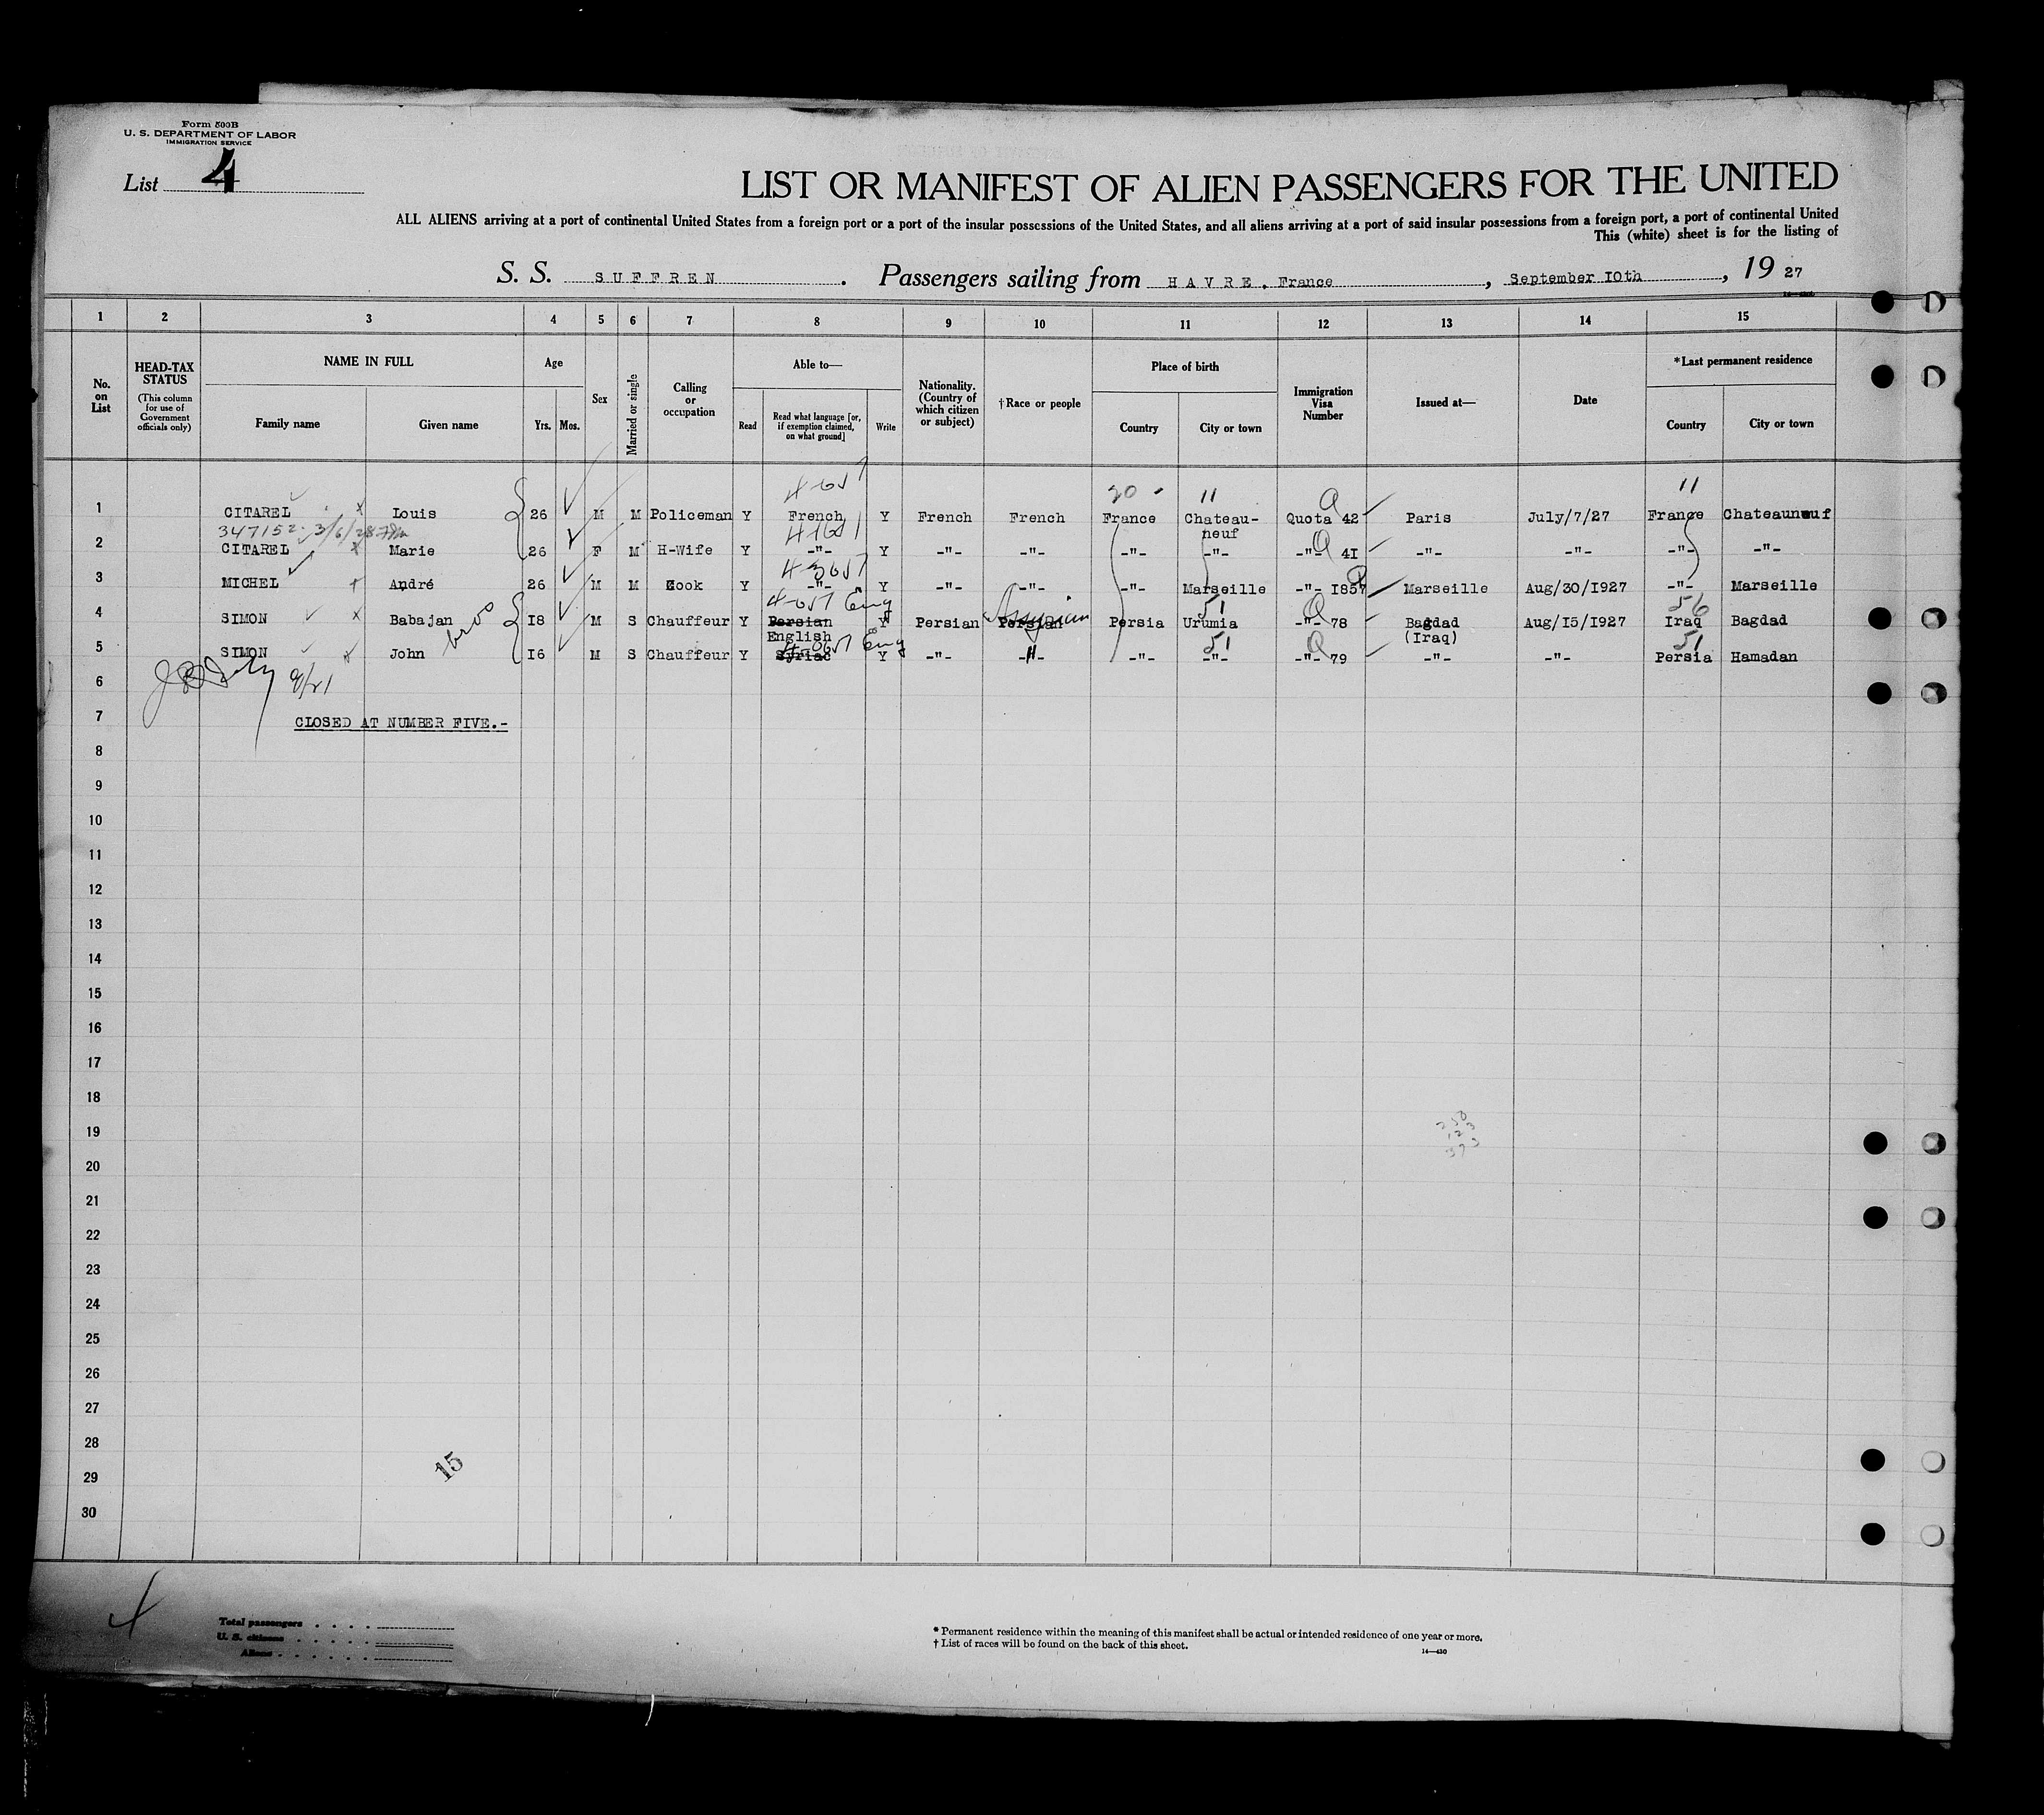 Form 500B
U. S. DEPARTMENT OF LABOR
IMMIGRATION SERVICE
List 4
LIST OR MANIFEST OF ALIEN PASSENGERS FOR THE UNITED
ALL ALIENS arriving at a port of continental United States from a foreign port or a port of the insular possessions of the United States, and all aliens arriving at a port of said insular possessions from a foreign port, a port of continental United
This (white) sheet is for the listing of
S. S. SUFFREN . Passengers sailing from HAVRE, France , September 10th , 19 27
1 2 3 4 5 6 7 8 9 10 11 12 13 14 15
No. on List
HEAD-TAX STATUS (This column for use of Government officials only)
NAME IN FULL
Family name Given name
Age
Yrs. Mos.
Sex
Married or single
Calling or occupation
Able to—
Read Read what language [or, if exemption claimed, on what ground] Write
Nationality. (Country of which citizen or subject)
†Race or people
Place of birth
Country City or town
Immigration Visa Number
Issued at—
Date
*Last permanent residence
Country City or town
20 11 11
1 CITAREL Louis 26 M M Policeman Y French Y French French France Chateau-neuf Quota 42 Paris July/7/27 France Chateauneuf
347152 3/6/28
2 CITAREL Marie 26 F M H-Wife Y -"- Y -"- -"- -"- -"- -"- 41 -"- -"- -"- -"-
3 MICHEL André 26 M M Cook Y -"- Y -"- -"- -"- Marseille -"- 1857 Marseille Aug/30/1927 -"- Marseille
Eng 51 56
4 SIMON Babajan bros 18 M S Chauffeur Y Persian English Y Persian Persian Assyrian Persia Urumia -"- 78 Bagdad (Iraq) Aug/15/1927 Iraq Bagdad
Eng 51 51
5 SIMON John 16 M S Chauffeur Y Syriac Y -"- -"- -"- -"- -"- 79 -"- -"- Persia Hamadan
6 9/21
7 CLOSED AT NUMBER FIVE.-
8
9
10
11
12
13
14
15
16
17
18
19
20
21
22
23
24
25
26
27
28
29
30
15
Total passengers
U. S. citizens
Aliens
* Permanent residence within the meaning of this manifest shall be actual or intended residence of one year or more.
† List of races will be found on the back of this sheet.
14—430